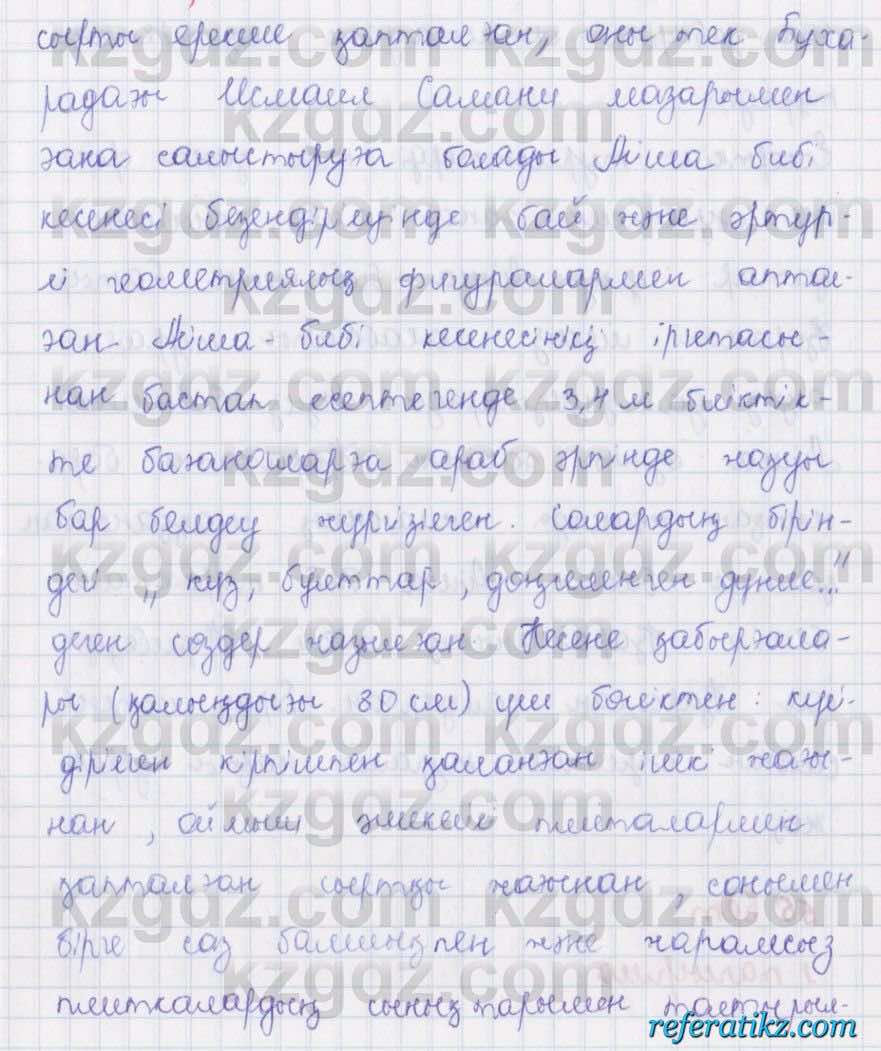 сырты ерекше қапталған, оны тек Буха-
радағы Исмаил Самани мазарымен
ғана салыстыруға болады Айша бибі
кесенесі безендірілуінде бай және әртүр-
лі геометриялық фигуралармен аптал-
ған. Айша-бибі кесенесінің іргетасы-
нан бастап есептегенде 3,4 м биіктік-
те бағаналарға араб әрпінде жазуы
бар белдеу жүргізілген. Солардың бірін-
дегі „күз, бұлттар, дөңгеленген дүние..."
деген сөздер жазылған Кесене қабырғала-
ры (қалыңдығы 80 см) үш бөліктен: күй-
дірілген кірпішпен қаланған ішкі жағы-
нан, ойлыш әшекейлі плиталармен
қапталған сыртқы жағынан, сонымен
бірге саз балшықпен және жарамсыз
плиткалардың сынықтарымен толтырыл-
kzgdz.com
referatikz.com